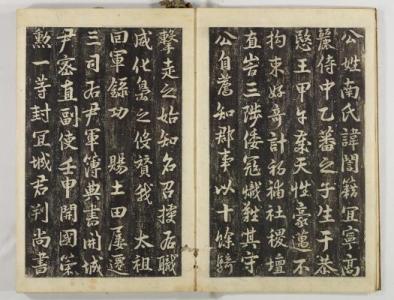 公姓南氏諱誾籍宜寧高
麗侍中乙蕃之子生于恭
愍王甲午天性豪邁不
拘束好奇計初補社稷壇
直峕三陟倭寇熾難其守
公自奮知郡事以十餘騎
擊走之始知名召授右職
威化島之役贊我 太祖
回軍錄功 賜土田屢遷
三司右尹軍簿典書開城
尹密直副使壬申開國策
勳一等封宜城君判尚書